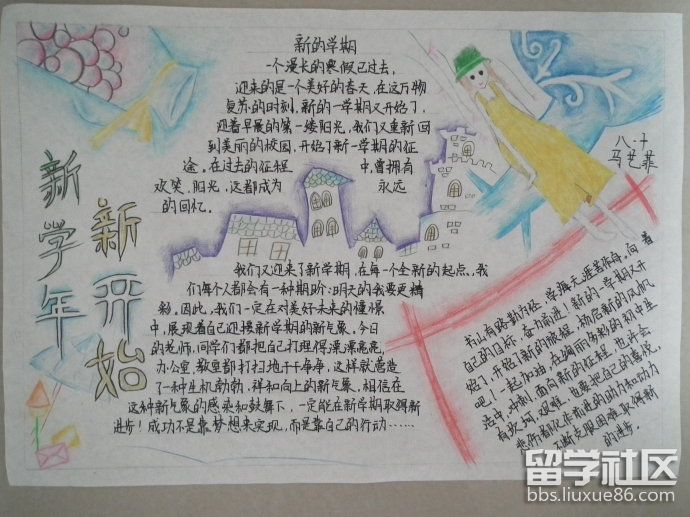 新的学期
一个漫长的寒假已过去,
迎来的是一个美好的春天,在这万物
复苏的时刻,新的一学期又开始了,
迎着早晨的第一缕阳光,我们又重新回
到美丽的校园,开始了新一学期的征
途。在过去的征程中,曾拥有
欢笑、阳光,这都成为永远
的回忆。
八.十
马艺菲
新学年
新开始
我们又迎来了新学期,在每一个全新的起点,我
们每个人都会有一种期盼:明天的我要更精
彩。因此,我们一定在对美好未来的憧憬
中,展现着自己迎接新学期的新气象,今日
的老师、同学们都把自己打理得漂漂亮亮,
办公室、教室都打扫地干干净净,这样就营造
了一种生机勃勃,祥和向上的新气象,相信在
这种新气象的感染和鼓舞下,一定能在新学期取得新
进步!成功不是靠梦想来实现,而是靠自己的行动……
书山有路勤为径,学海无涯苦作舟,向着
自己的目标,奋力前进!新的一学期又开
始了,开始了新的旅程,扬起新的风帆
吧!一起加油,在绚丽多彩的初中生
活中,冲刺,面向新的征程,也许会
有坎坷、艰难,也要把自己的喜悦,
悲伤都化作前进的动力和动力
不断克服困难,取得新
的进步。
留学社区
bbs.liuxue86.com